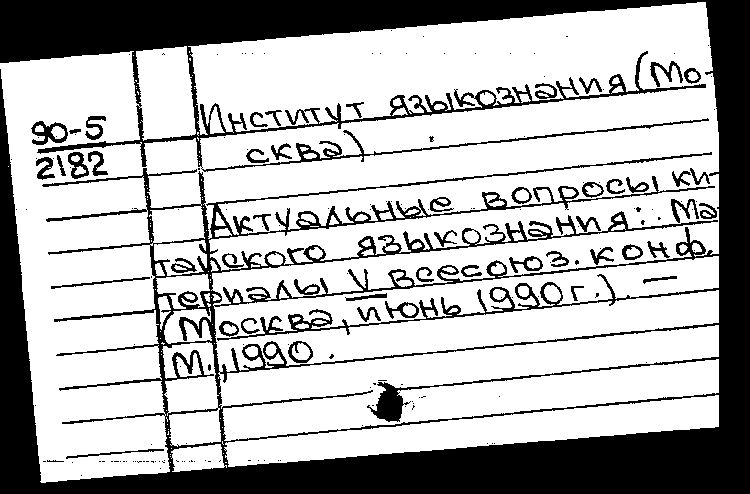 90-5
2182
Институт языкознания (Мо-
сква).
Актуальные вопросы ки-
тайского языкознания: Ма-
териалы V всесоюз. конф.
(Москва, июнь 1990 г.). —
М., 1990.